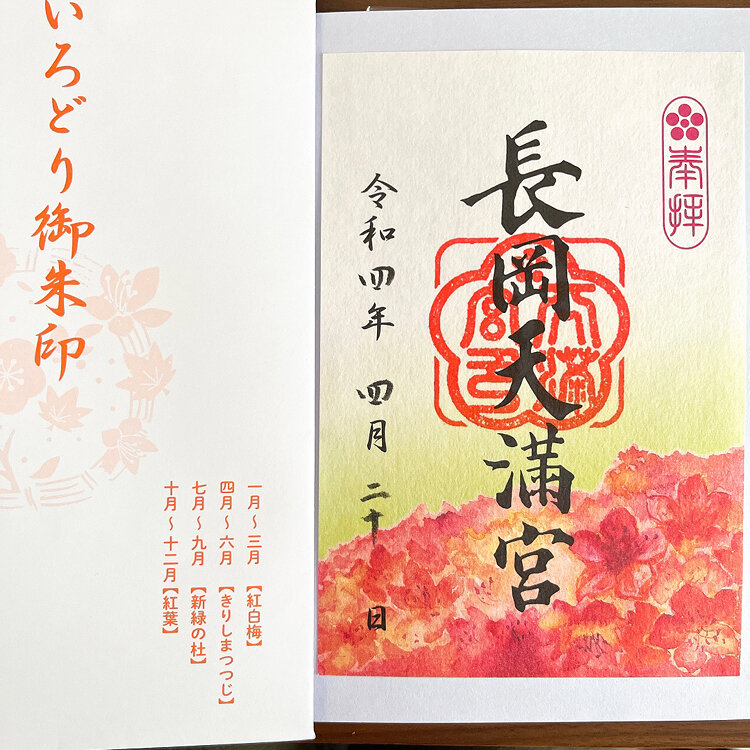 いろどり御朱印
一月～三月【紅白梅】
四月～六月【きりしまつつじ】
七月～九月【新緑の杜】
十月～十二月【紅葉】
奉拝
長岡天満宮
令和四年 四月 二十 日